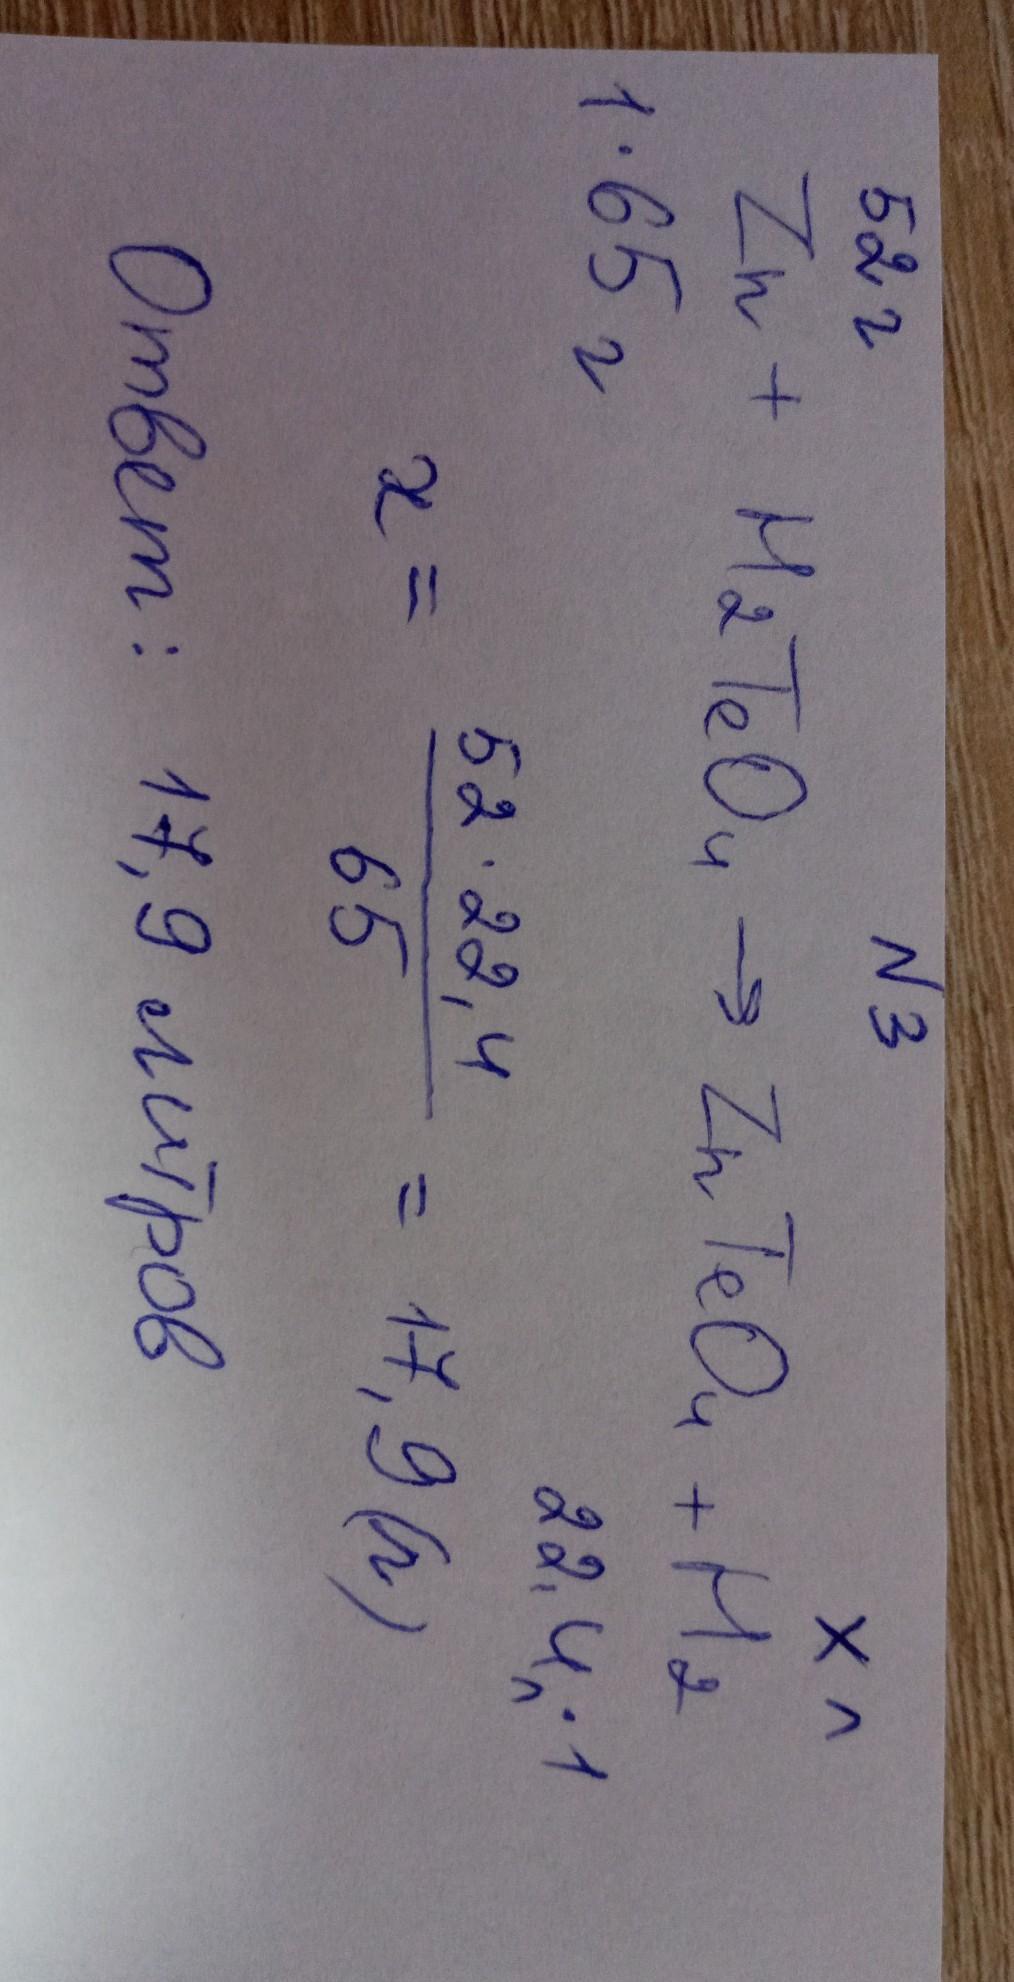 N 3
52 г х л
Zn + H2TeO4 → ZnTeO4 + H2
1·65 г 22,4л·1
x = 52·22,4 / 65 = 17,9 (л)
Ответ: 17,9 литров